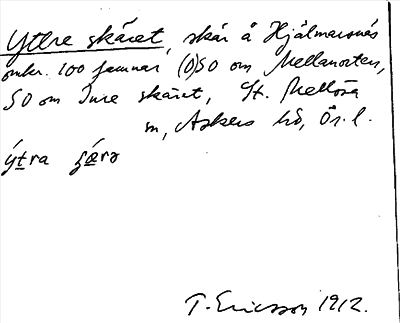 Yttre skäret, skär å Hjälmarsnäs
omkr. 100 famnar (O)SO om Mellanorten,
SO om Inre skäret, St. Mellösa
sn, Askers hd, Ör. l.
ýt̲ra
T. Ericsson 1912.